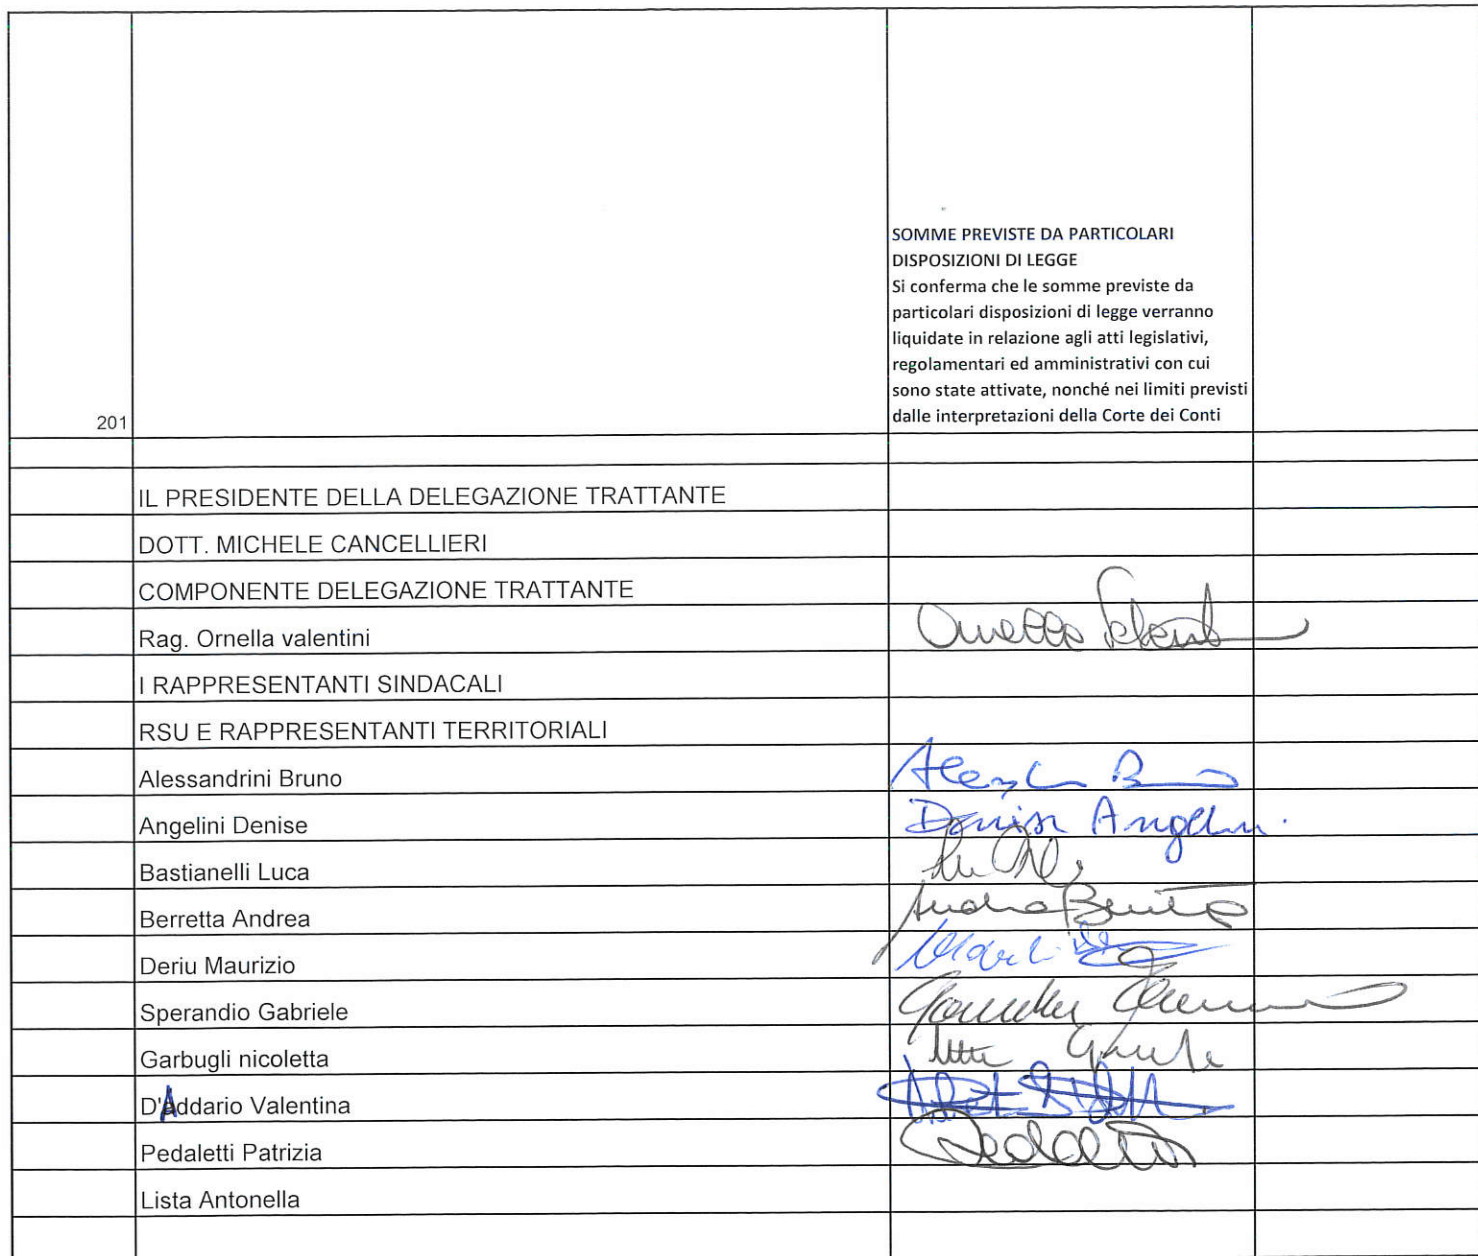 SOMME PREVISTE DA PARTICOLARI
DISPOSIZIONI DI LEGGE
Si conferma che le somme previste da
particolari disposizioni di legge verranno
liquidate in relazione agli atti legislativi,
regolamentari ed amministrativi con cui
sono state attivate, nonché nei limiti previsti
201 dalle interpretazioni della Corte dei Conti
IL PRESIDENTE DELLA DELEGAZIONE TRATTANTE
DOTT. MICHELE CANCELLIERI
COMPONENTE DELEGAZIONE TRATTANTE
Rag. Ornella valentini
I RAPPRESENTANTI SINDACALI
RSU E RAPPRESENTANTI TERRITORIALI
Alessandrini Bruno
Angelini Denise Denise Angelini
Bastianelli Luca
Berretta Andrea
Deriu Maurizio
Sperandio Gabriele
Garbugli nicoletta
D'Addario Valentina
Pedaletti Patrizia
Lista Antonella